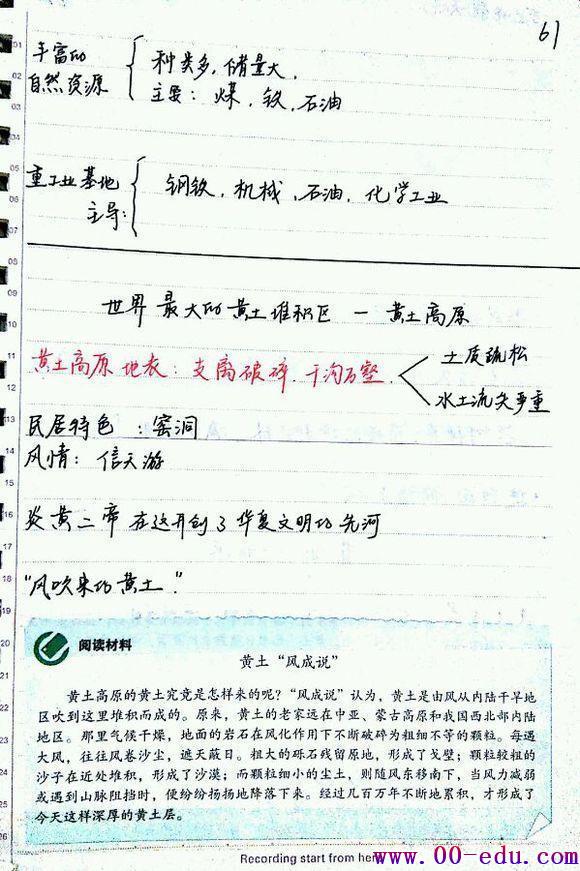 61
丰富的
自然资源
种类多,储量大,
主要:煤,铁,石油
重工业基地
主导:
钢铁,机械,石油,化学工业
世界最大的黄土堆积区 — 黄土高原
黄土高原地表:支离破碎.千沟万壑
土质疏松
水土流失严重
民居特色:窑洞
风情:信天游
炎黄二帝在这开创了华夏文明的先河
"风吹来的黄土."
阅读材料
黄土“风成说”
黄土高原的黄土究竟是怎样来的呢?“风成说”认为,黄土是由风从内陆干旱地
区吹到这里堆积而成的。原来,黄土的老家远在中亚、蒙古高原和我国西北部内陆
地区。那里气候干燥,地面的岩石在风化作用下不断破碎为粗细不等的颗粒。每遇
大风,往往风卷沙尘,遮天蔽日。粗大的砾石残留原地,形成了戈壁;颗粒较粗的
沙子在近处堆积,形成了沙漠;而颗粒细小的尘土,则随风东移南下,当风力减弱
或遇到山脉阻挡时,便纷纷扬扬地降落下来。经过几百万年不断地累积,才形成了
今天这样深厚的黄土层。
Recording start from here
www.00-edu.com